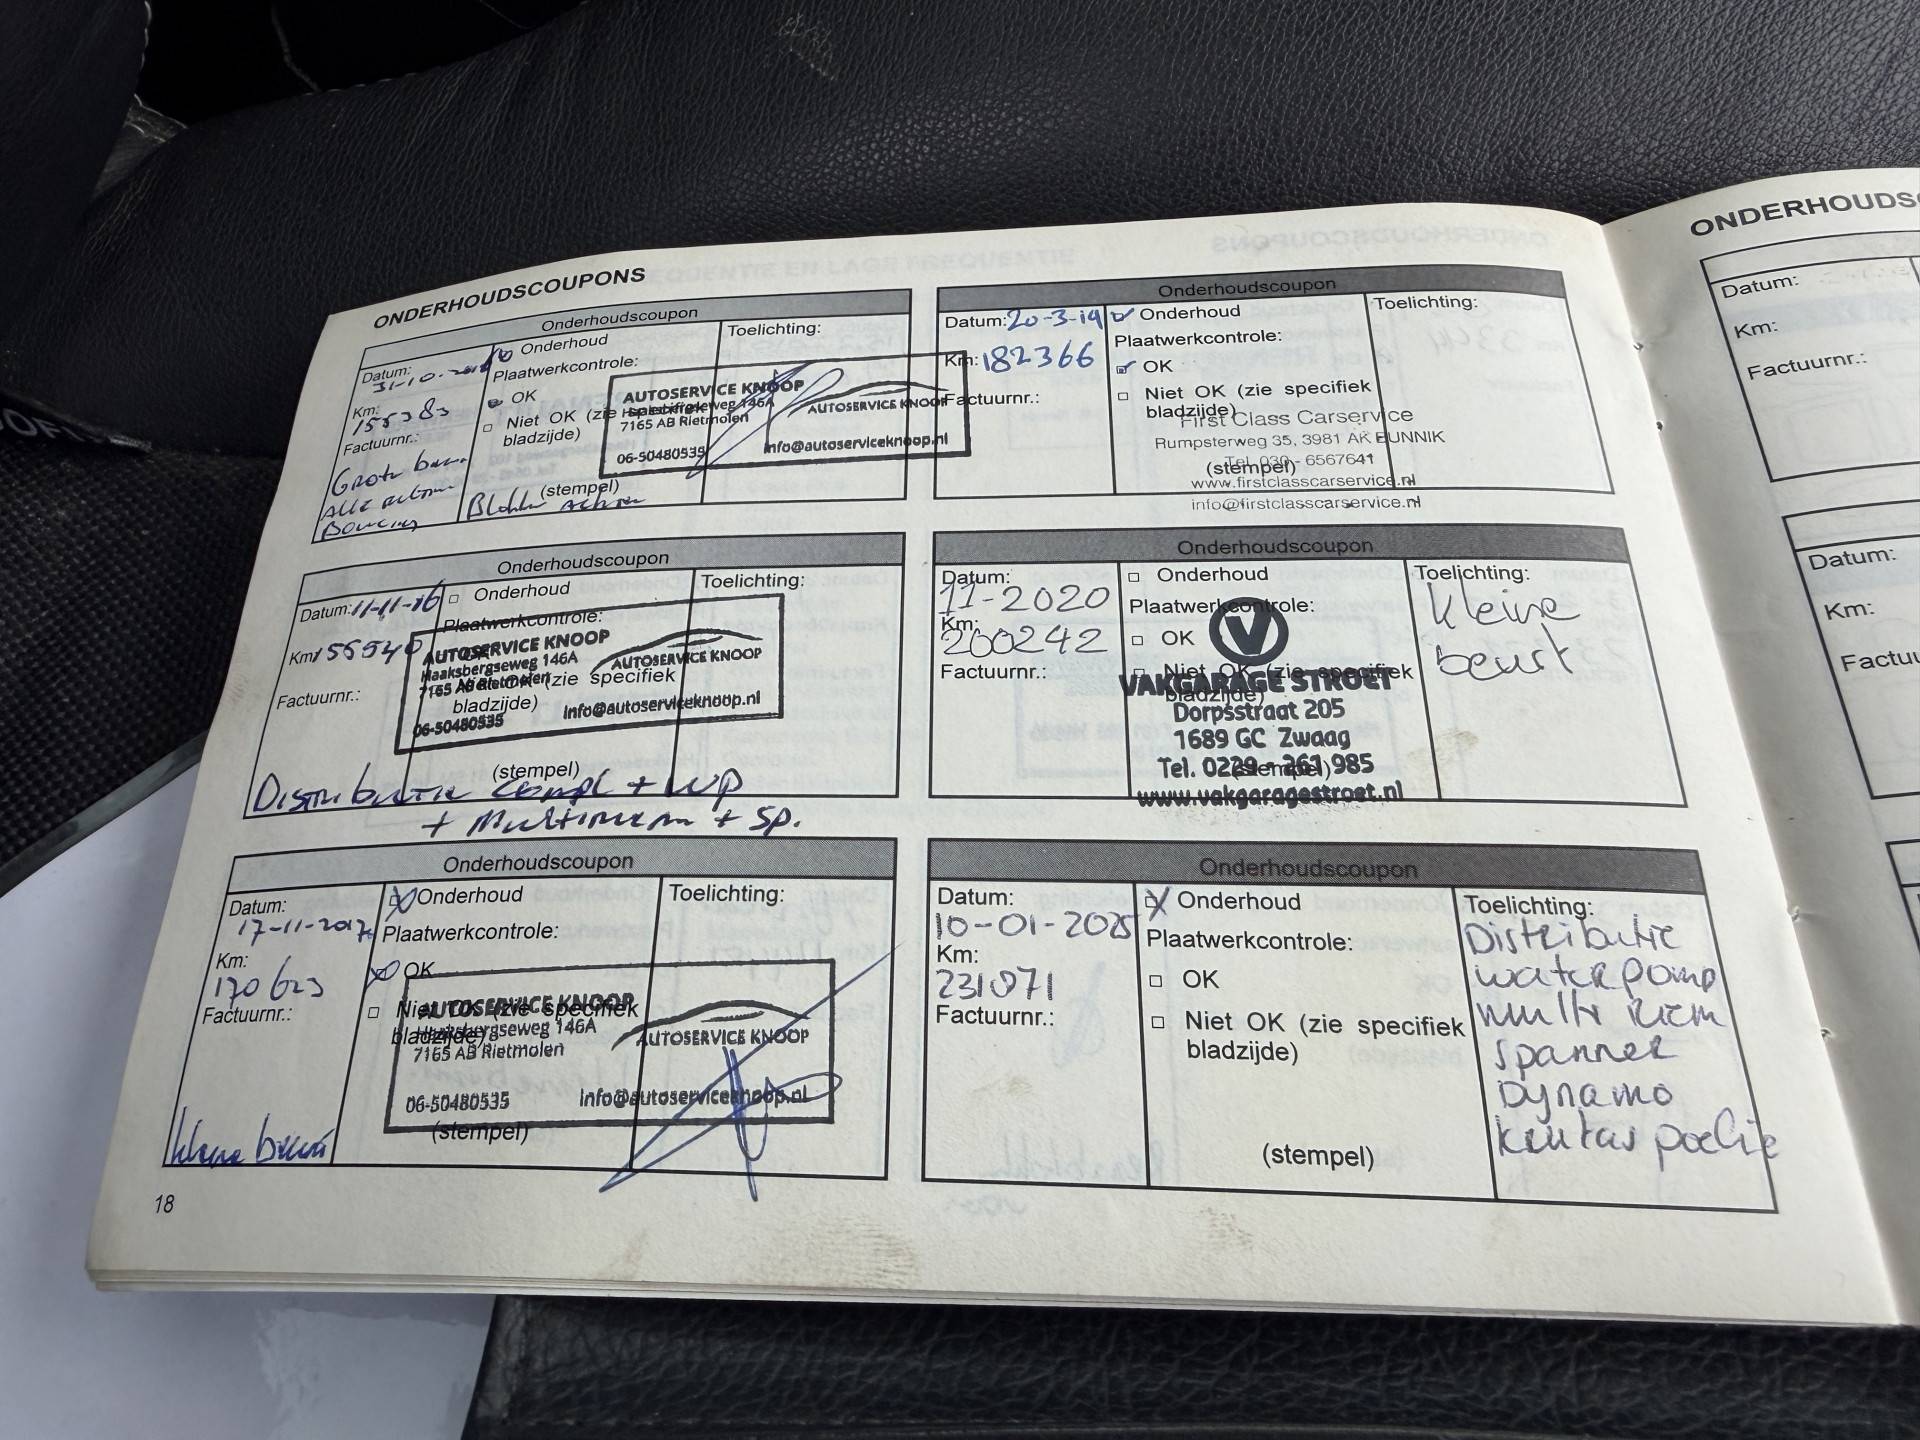 ONDERHOUDSCOUPONS
Onderhoudscoupon
Datum:
31-10-2016
Km:
155383
Factuurnr.:
Grote
Alle
Onderhoud
Plaatwerkcontrole:
OK
Niet OK (zie specifiek
bladzijde)
(stempel)
Toelichting:
AUTOSERVICE KNOOP
Haaksbergseweg 146A
7165 AB Rietmolen
06-50480535
AUTOSERVICE KNOOP
info@autoserviceknoop.nl
Onderhoudscoupon
Datum: 11-11-16
Km: 155540
Factuurnr.:
Onderhoud
Plaatwerkcontrole:
Niet OK (zie specifiek
bladzijde)
(stempel)
Toelichting:
AUTOSERVICE KNOOP
Haaksbergseweg 146A
7165 AB Rietmolen
06-50480535
AUTOSERVICE KNOOP
info@autoserviceknoop.nl
Distributie compl + WP
+ Multiriem + sp.
Onderhoudscoupon
Datum:
17-11-2017
Km:
170623
Factuurnr.:
kleine beurt
Onderhoud
Plaatwerkcontrole:
OK
Niet OK (zie specifiek
bladzijde)
(stempel)
Toelichting:
AUTOSERVICE KNOOP
Haaksbergseweg 146A
7165 AB Rietmolen
06-50480535
AUTOSERVICE KNOOP
info@autoserviceknoop.nl
18
Onderhoudscoupon
Datum: 20-3-19
Km: 182366
Factuurnr.:
Onderhoud
Plaatwerkcontrole:
OK
Niet OK (zie specifiek
bladzijde)
(stempel)
Toelichting:
First Class Carservice
Rumpsterweg 35, 3981 AK BUNNIK
Tel. 030 - 6567641
www.firstclasscarservice.nl
info@firstclasscarservice.nl
Onderhoudscoupon
Datum:
11-2020
Km:
200242
Factuurnr.:
Onderhoud
Plaatwerkcontrole:
OK
Niet OK (zie specifiek
bladzijde)
(stempel)
Toelichting:
kleine
beurt
V
VAKGARAGE STROET
Dorpsstraat 205
1689 GC Zwaag
Tel. 0229 - 261 985
www.vakgaragestroet.nl
Onderhoudscoupon
Datum:
10-01-2025
Km:
231071
Factuurnr.:
Onderhoud
Plaatwerkcontrole:
OK
Niet OK (zie specifiek
bladzijde)
(stempel)
Toelichting:
Distributie
waterpomp
multi riem
spanner
Dynamo
krukas poelie
ONDERHOUDSC
Datum:
Km:
Factuurnr.:
Datum:
Km:
Factuu